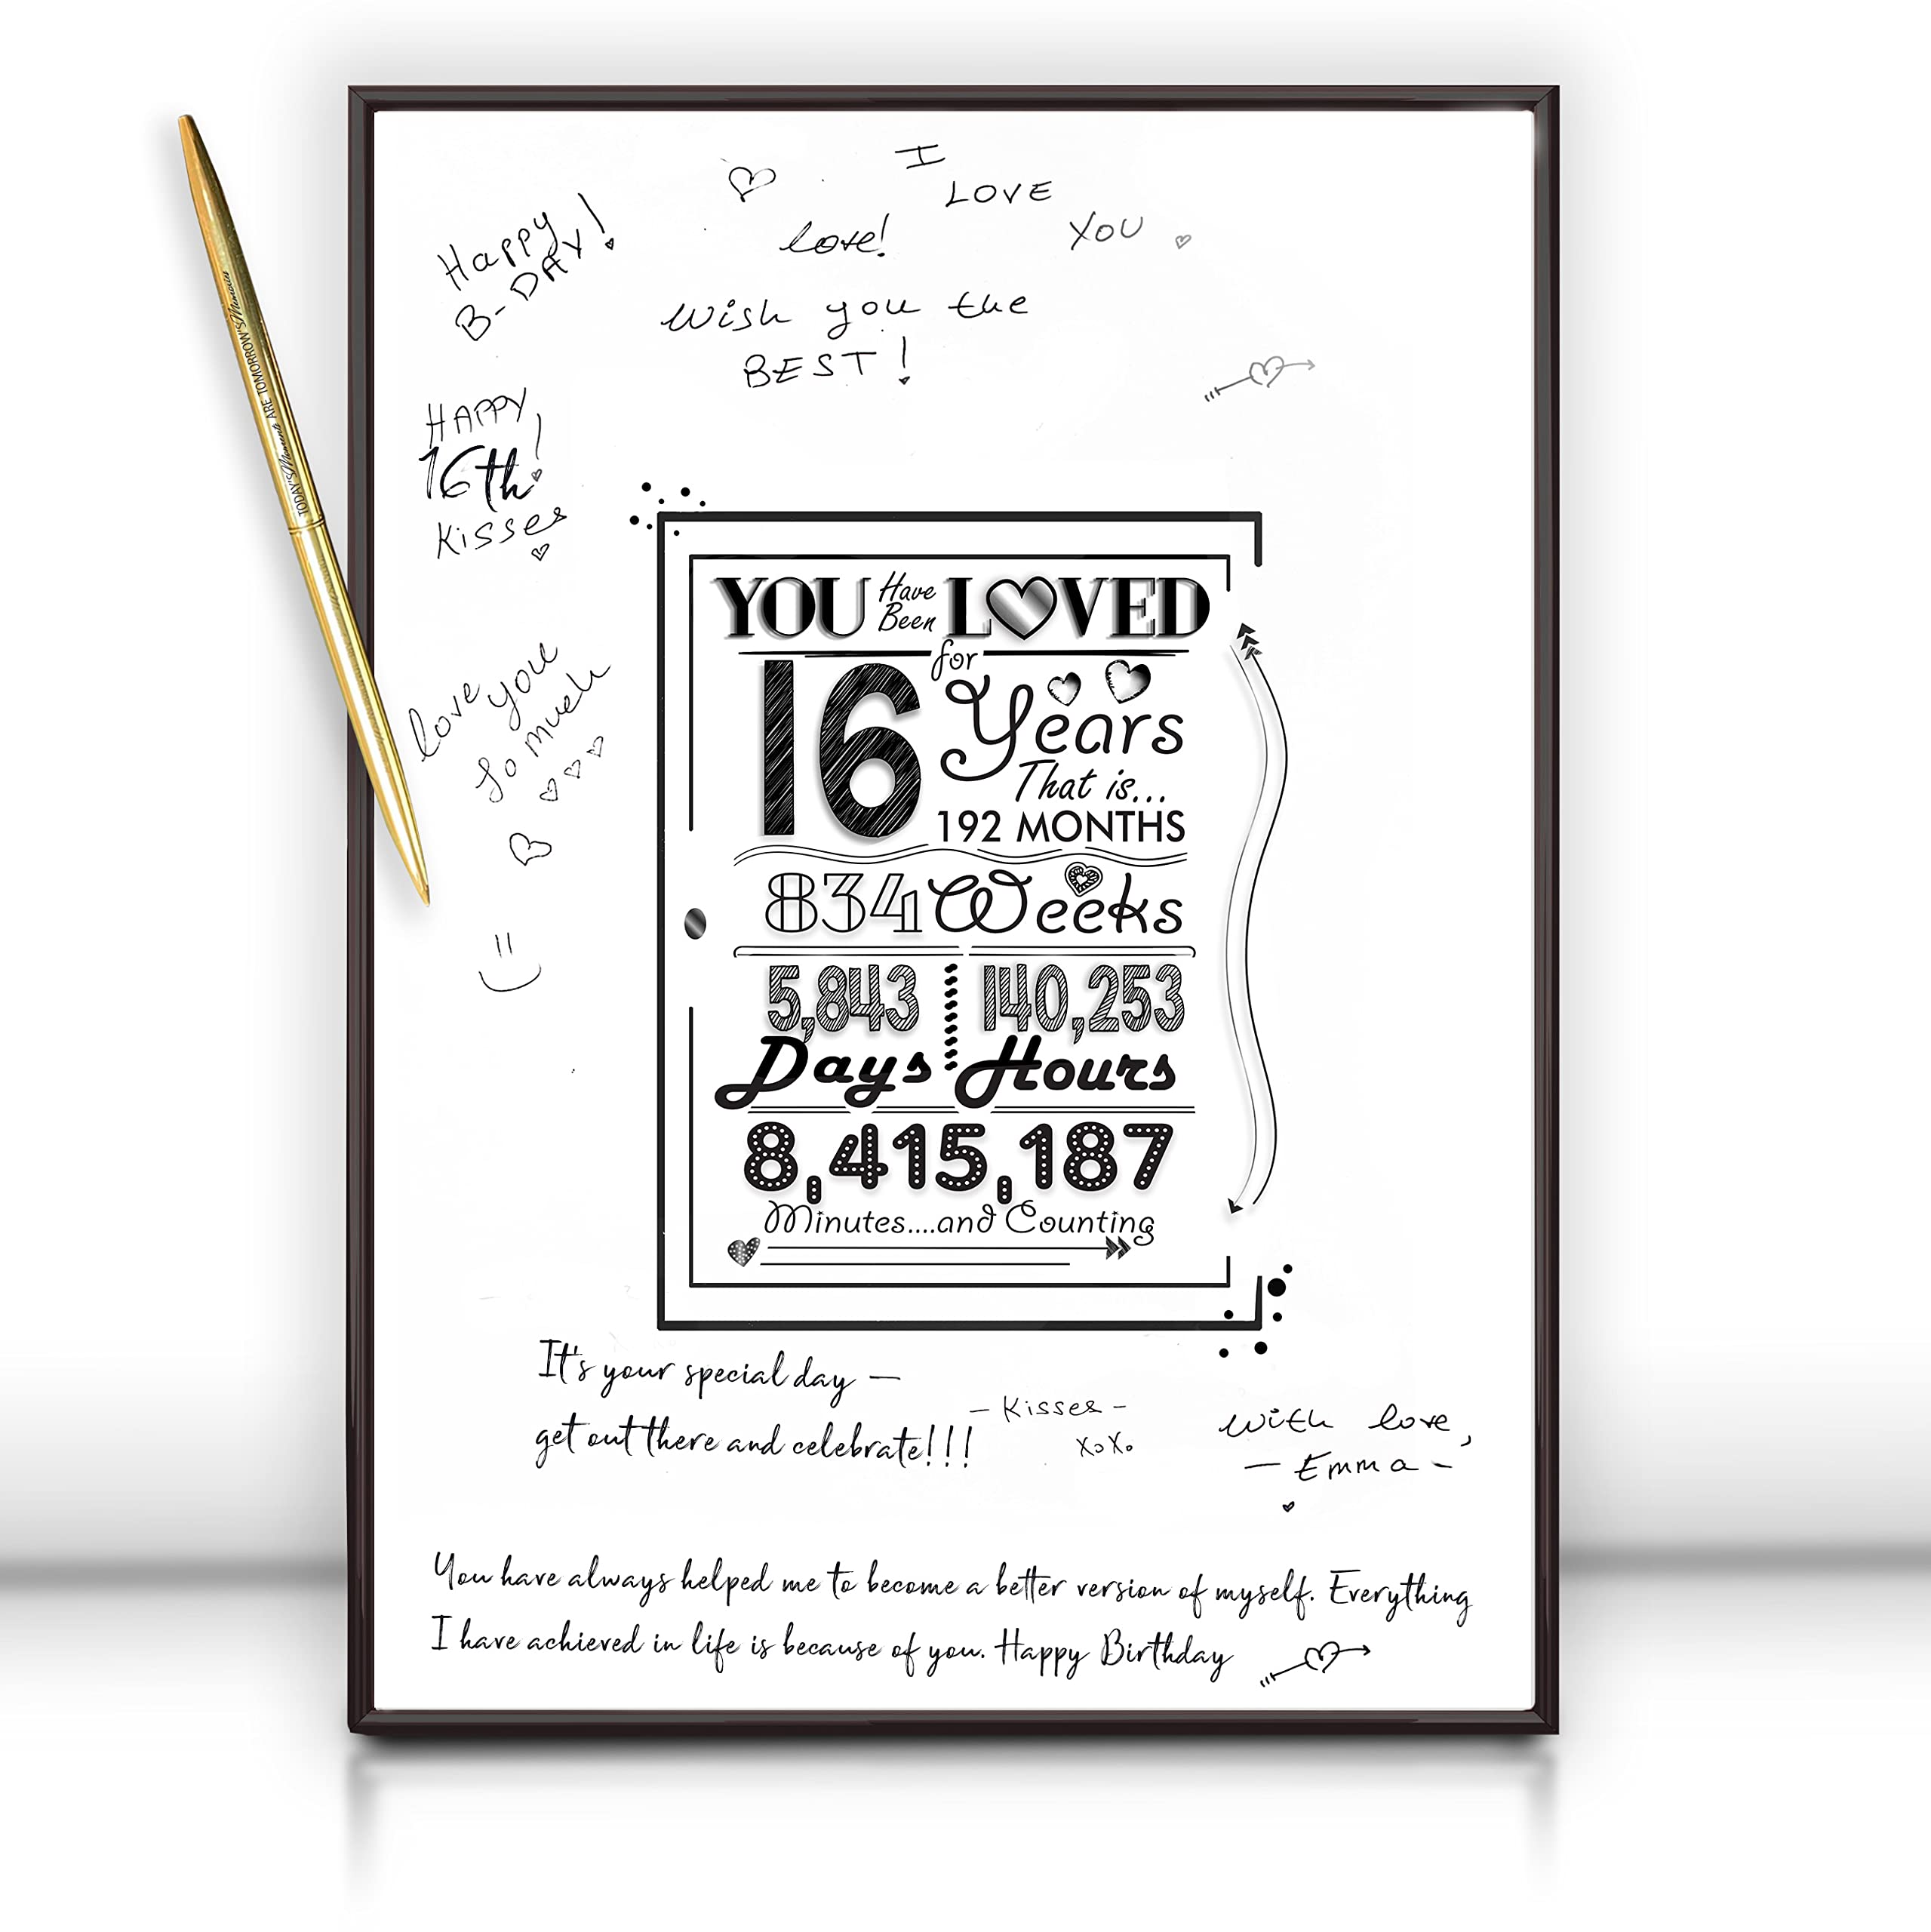 I
LOVE
YOU
love!
Happy
B-DAY!
Wish you the
BEST!
HAPPY
16th!
Kisses
love you
so much
TODAY'S Moments ARE TOMORROW'S Memories
YOU Have Been LOVED
for
16 Years
That is...
192 MONTHS
834 Weeks
5,843 Days
140,253 Hours
8,415,187
Minutes....and Counting
It's your special day —
get out there and celebrate!!!
- Kisses -
XoXo
With love,
- Emma -
You have always helped me to become a better version of myself. Everything
I have achieved in life is because of you. Happy Birthday